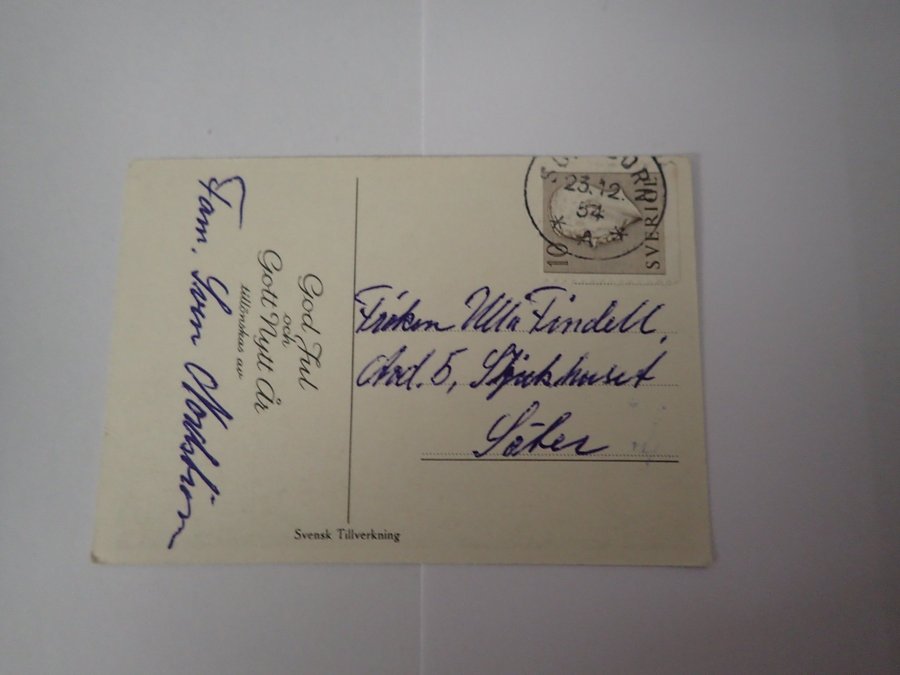 God Jul
och
Gott Nytt År
tillönskas av
Fam. Sven Norström
23.12.
54
* A *
10
SVERIGE
Fröken Ulla Findell,
Avd. 5, Sjukhuset
Säter
Svensk Tillverkning